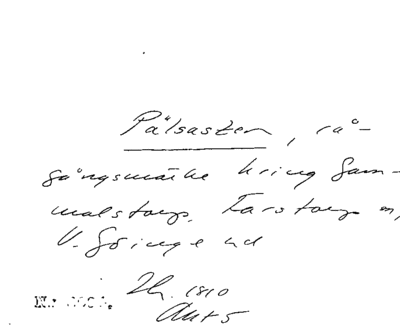 Pålsasten, rå-
gångsmärke kring Gam-
malstorp. Farstorp m,
V. Göinge hd
1810